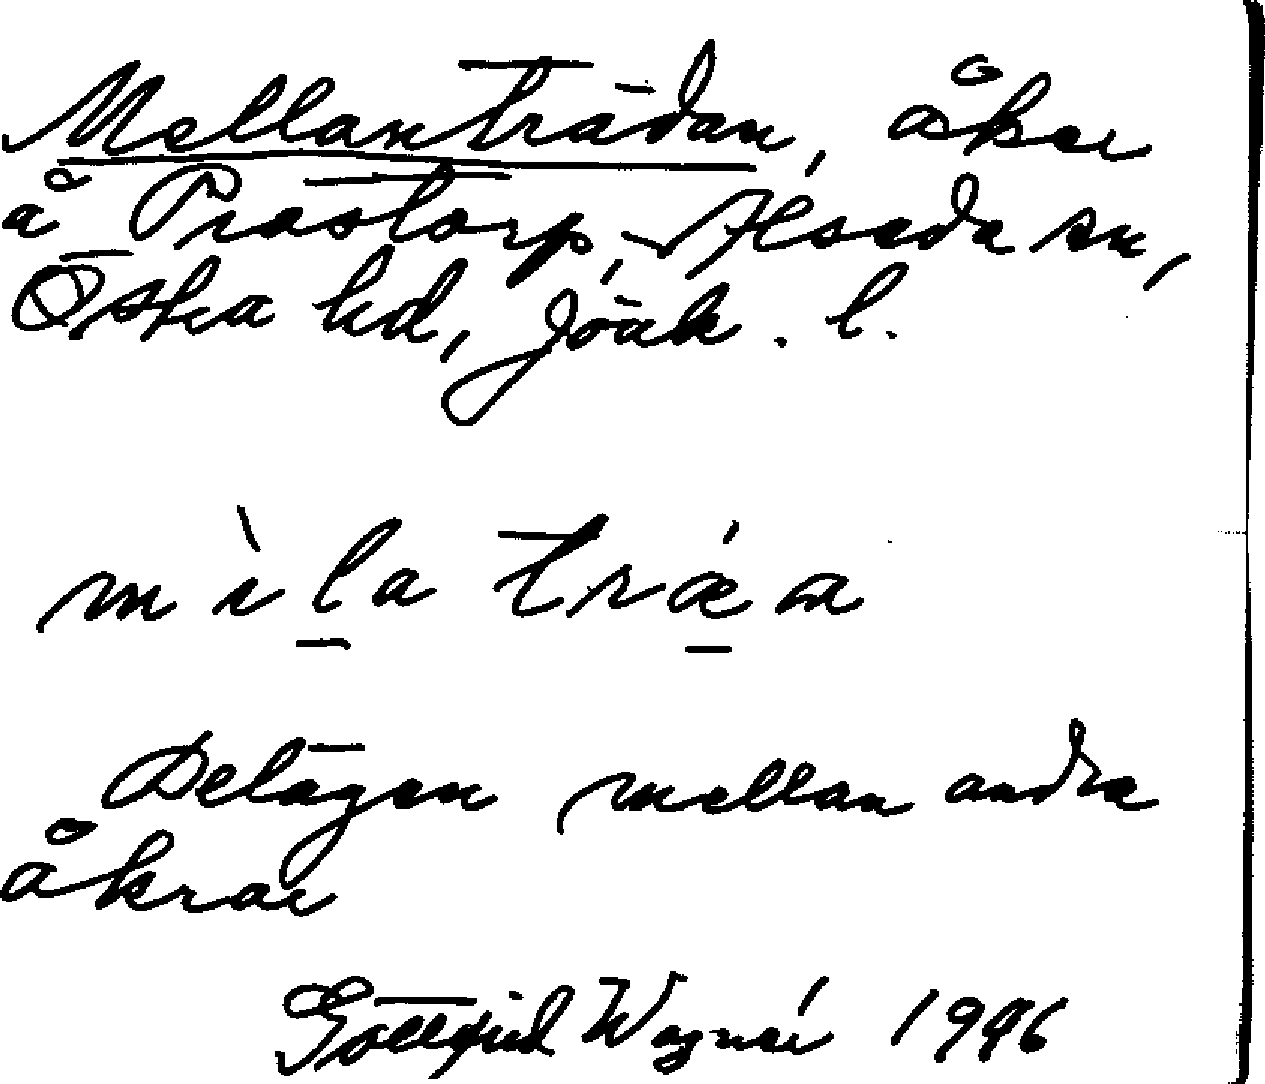 Mellanträdan, åker
å Prästorp, Alseda sn,
Östra hd, Jönk. l.
mìla træ´a
Belägen mellan andra
åkrar
Gottfrid Wagnér 1946